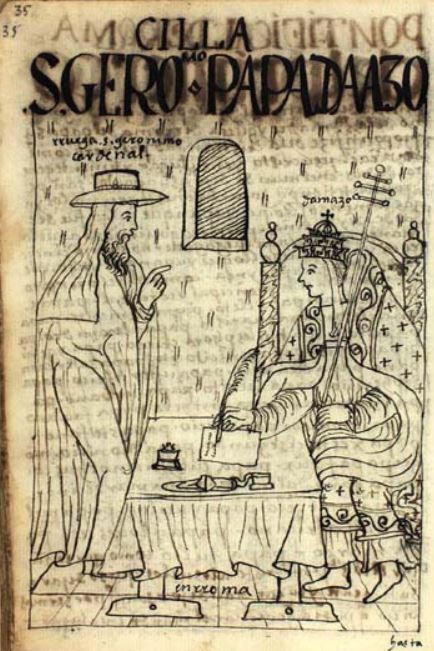 35
35
CILLA
S. GEROMO PAPA DAMAZO
rruega. s. geronimo
cardenal
damazo
en rroma
hasta